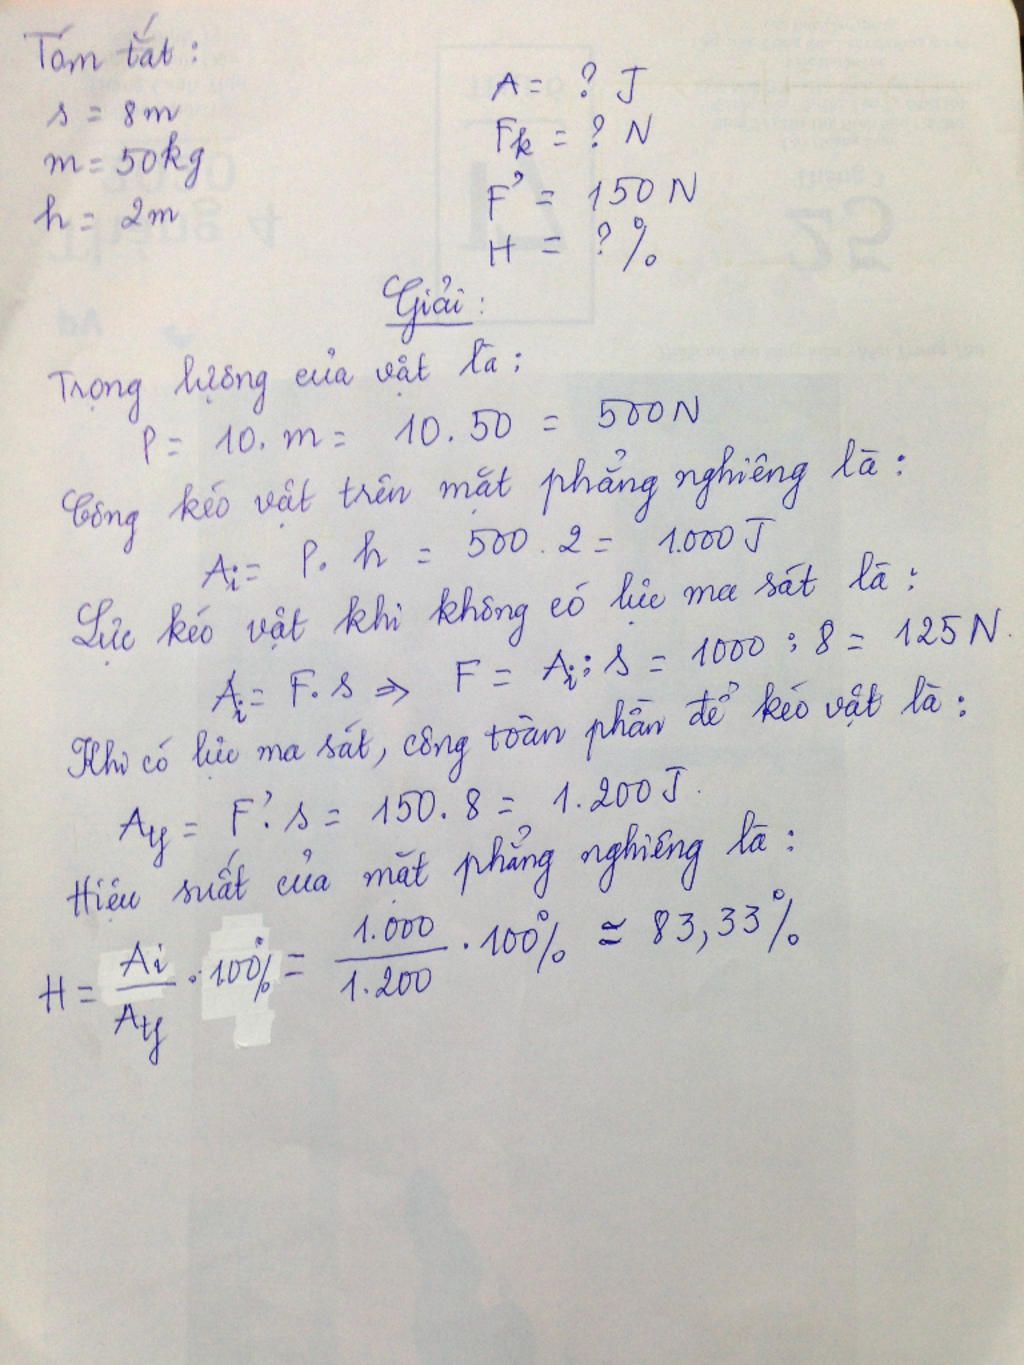 Tóm tắt:
s = 8m
m = 50kg
h = 2m
A = ? J
Fk = ? N
F' = 150 N
H = ? %
Giải:
Trọng lượng của vật là:
P = 10. m = 10. 50 = 500N
Công kéo vật trên mặt phẳng nghiêng là:
Ai = P. h = 500 . 2 = 1.000 J
Lực kéo vật khi không có lực ma sát là:
Ai = F. s => F = Ai : s = 1000 : 8 = 125 N.
Khi có lực ma sát, công toàn phần để kéo vật là:
Atp = F'. s = 150. 8 = 1.200 J.
Hiệu suất của mặt phẳng nghiêng là:
H = Ai / Atp . 100% = 1.000 / 1.200 . 100% ≃ 83,33%